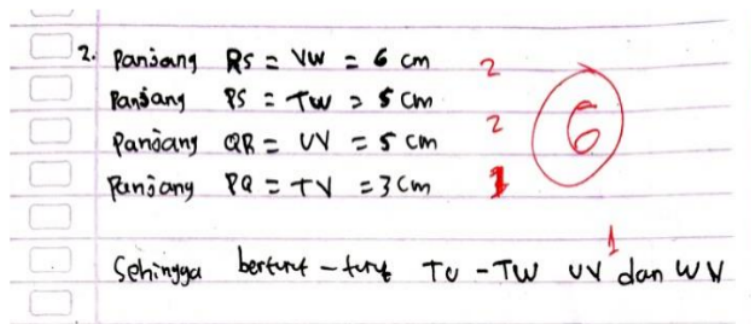 2. Panjang RS = VW = 6 cm 2
Panjang PS = TW = 5 cm
Panjang QR = UV = 5 cm 2
Panjang PQ = TV = 3 cm 1
6
1
Sehingga berturut - turut TU - TW UV dan WV